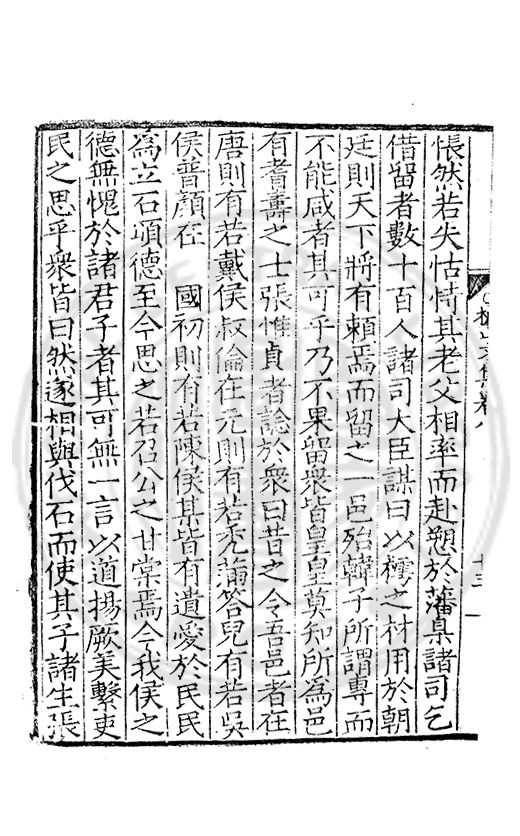 悵然若失怙恃其老父相率而赴愬於藩臬諸司乞
借留者數十百人諸司大臣謀曰以樗之材用於朝
廷則天下將有賴焉而留之一邑殆韓子所謂專而
不能咸者其可乎乃不果留衆皆皇皇莫知所為邑
有耆壽之士張惟貞者諗於衆曰昔之令吾邑者在
唐則有若戴侯叔倫在元則有若禿滿答兒有若吳
侯普顔在 國初則有若陳侯某皆有遺愛於民民
為立石頌德至今思之若召公之甘棠焉今我侯之
德無愧於諸君子者其可無一言以道揚厥美繫吏
民之思乎衆皆曰然遂相與伐石而使其子諸生張
文集卷八
十三